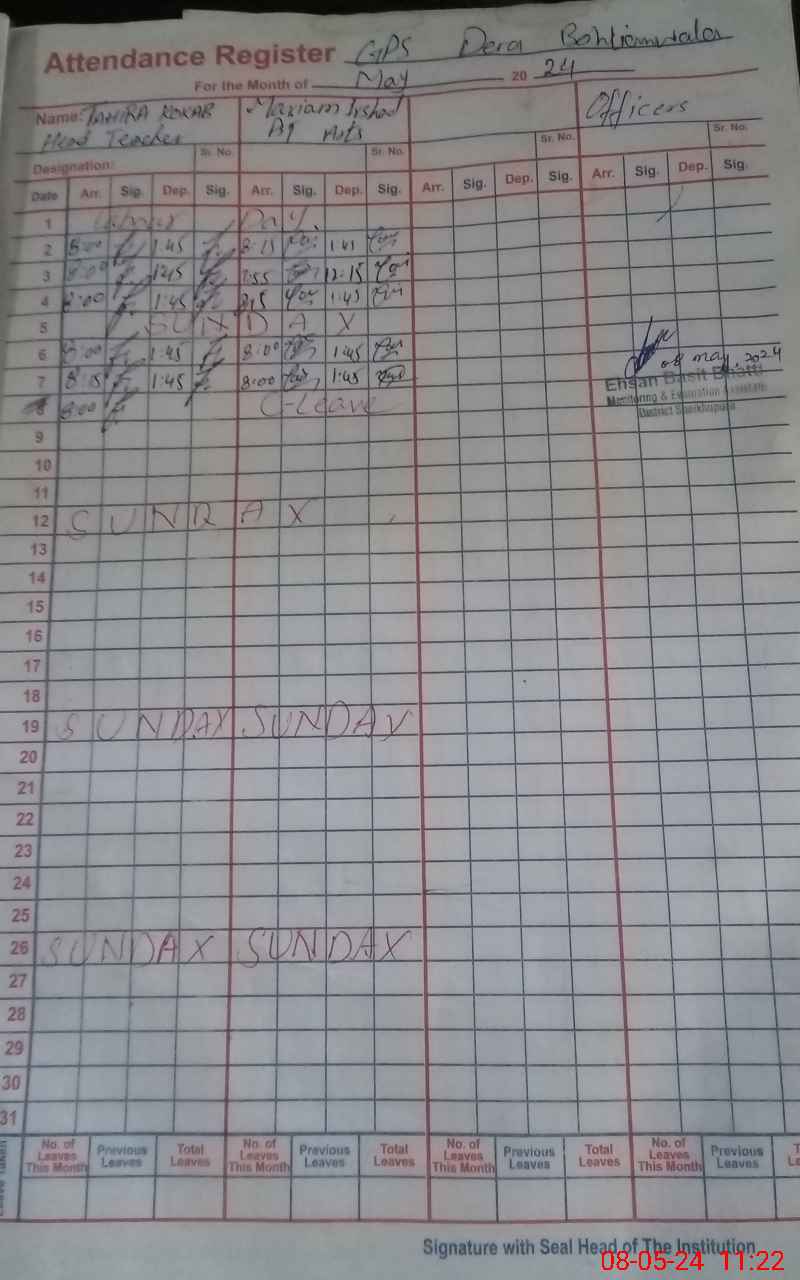 Attendance Register GPS Dera
For the Month of May 20 24
Name: TAHIRA KOKAB Mariam Irshad Officers
Head Teacher Arts
Sr. No. Sr. No. Sr. No. Sr. No.
Designation:
Date Arr. Sig. Dep. Sig. Arr. Sig. Dep. Sig. Arr. Sig. Dep. Sig. Arr. Sig. Dep. Sig.
1 Day
2 8:00 1:45 8:15
3 8:00 12:15
4 8:00 1:45 1:45
5 SUNDAY
6 8:00 1:45 8:00 1:45
7 8:15 1:45 8:00 1:45 08 may, 2024
Ehsan Basit Bhatti
Monitoring & Evaluation Assistant
District Sheikhupura
8 8:00 C-Leave
9
10
11
12 SUNDAY
13
14
15
16
17
18
19 SUNDAY SUNDAY
20
21
22
23
24
25
26 SUNDAY SUNDAY
27
28
29
30
31
No. of Leaves This Month Previous Leaves Total Leaves No. of Leaves This Month Previous Leaves Total Leaves No. of Leaves This Month Previous Leaves Total Leaves No. of Leaves This Month Previous Leaves
Signature with Seal Head of The Institution
08-05-24 11:22